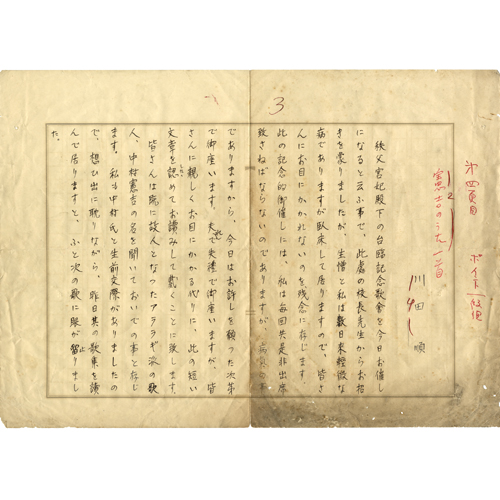 3
第四頁
ポイント一段組
憲吉のうた一首
川田順
秩父宮妃殿下の台臨記念歌會を今日お催し
になると云ふ事で、此處の校長先生からお招
きを蒙りましたが、生憎と私は數日來輕微な
病でありますが臥床して居りますので、皆さ
んにお目にかかれないのを残念に存じます。
此の記念的御催しには、私は毎回共是非出席
致さねばならないのでありますが、病気の事
でありますから、今日はお詳しを願つた次第
で御座います。夫で失禮で御座いますが、皆
さんに親しくお目にかかる代りに、此の短い
文章を認めてお讀みして戴くことに致します。
皆さんは既に故人となつたアララギ派の歌
人、中村憲吉の名を聞いておいでの事と存じ
ます。私も中村氏と生前交際がありましたの
で、想ひ出に耽りながら、昨日其の歌集を讀
んで居りますと、ふと次の歌に眼が留りまし
た。